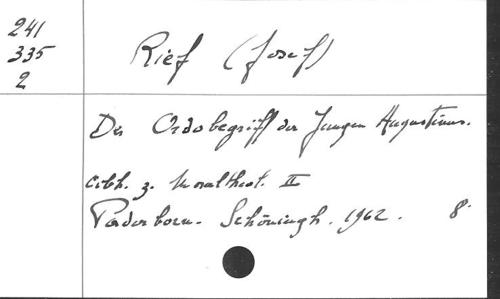 241
335
2
Rief (Josef)
Der Ordobegriff des Jungen Augustinus.
Abh. z. Moraltheol. II
Paderborn. Schöningh. 1962. 8°